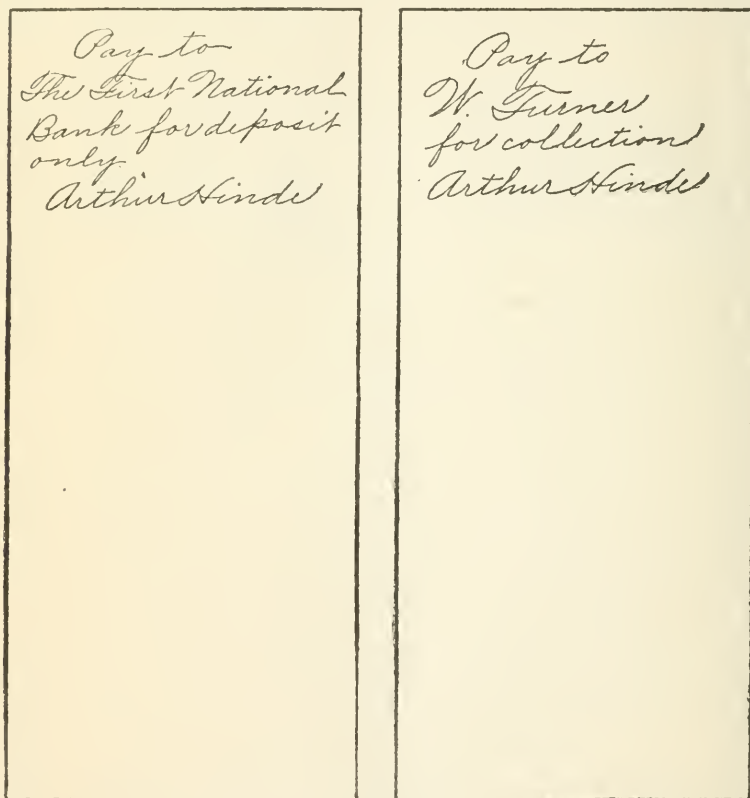 Pay to
The First National
Bank for deposit
only.
Arthur Hinde
Pay to
W. Turner
for collection
Arthur Hinde